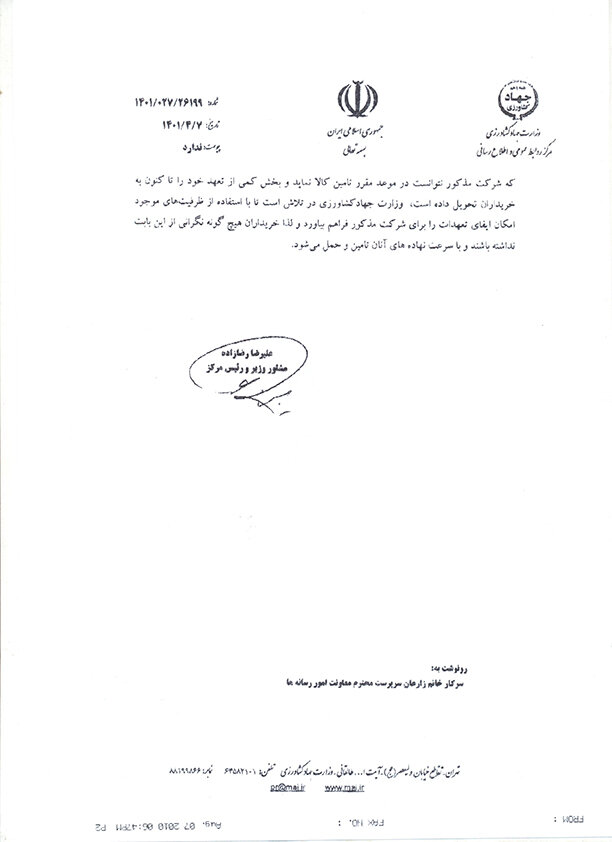 شماره: ۱۴۰۱/۰۲۷/۲۶۱۹۹
تاریخ: ۱۴۰۱/۴/۷
پیوست: ندارد
جمهوری اسلامی ایران
بسمه تعالی
جهاد
کشاورزی
وزارت جهاد کشاورزی
مرکز روابط عمومی و اطلاع رسانی
که شرکت مذکور نتوانست در موعد مقرر تامین کالا نماید و بخش کمی از تعهد خود را تا کنون به
خریداران تحویل داده است، وزارت جهادکشاورزی در تلاش است تا با استفاده از ظرفیت‌های موجود
امکان ایفای تعهدات را برای شرکت مذکور فراهم بیاورد و لذا خریداران هیچ گونه نگرانی از این بابت
نداشته باشند و با سرعت نهاده های آنان تامین و حمل می‌شود.
علیرضا رضازاده
مشاور وزیر و رئیس مرکز
رونوشت به:
سرکار خانم زارعان سرپرست محترم معاونت امور رسانه ها
تهران، تقاطع خیابان ولیعصر(عج)، آیت ا... طالقانی، وزارت جهاد کشاورزی تلفن: ۶۴۵۸۲۱۰۱ نمابر: ۸۸۹۶۹۸۶۶
pr@maj.ir www.maj.ir
FROM : FAX NO. : Aug. 07 2010 06:47PM P2